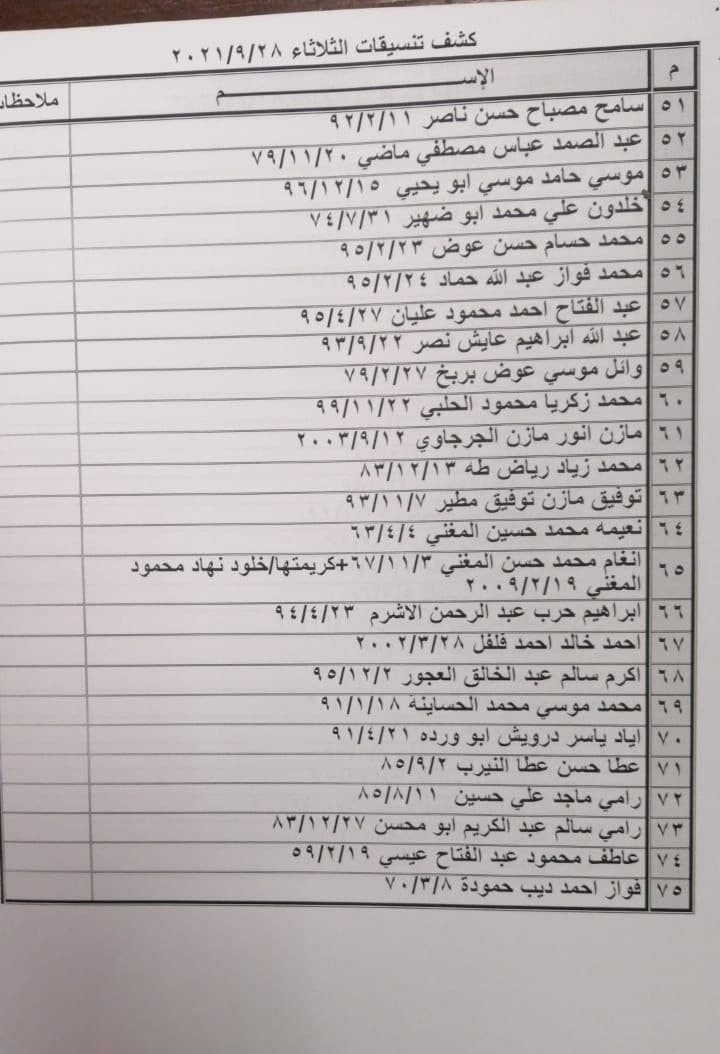 كشف تنسيقات الثلاثاء ٢٠٢١/٩/٢٨
م الإســـــــــــــم ملاحظات
٥١ سامح مصباح حسن ناصر ٩٢/٢/١١
٥٢ عبد الصمد عباس مصطفي ماضي ٧٩/١١/٢٠
٥٣ موسي حامد موسي ابو يحيي ٩٦/١٢/١٥
٥٤ خلدون علي محمد ابو ضهير ٧٤/٧/٣١
٥٥ محمد حسام حسن عوض ٩٥/٢/٢٣
٥٦ محمد فواز عبد الله حماد ٩٥/٢/٢٤
٥٧ عبد الفتاح احمد محمود عليان ٩٥/٤/٢٧
٥٨ عبد الله ابراهيم عايش نصر ٩٣/٩/٢٢
٥٩ وائل موسي عوض بربخ ٧٩/٢/٢٧
٦٠ محمد زكريا محمود الحلبي ٩٩/١١/٢٢
٦١ مازن انور مازن الجرجاوي ٢٠٠٣/٩/١٢
٦٢ محمد زياد رياض طه ٨٣/١٢/١٣
٦٣ توفيق مازن توفيق مطير ٩٣/١١/٧
٦٤ نعيمه محمد حسين المغني ٦٣/٤/٤
٦٥ انغام محمد حسن المغني ٦٧/١١/٣+كريمتها/خلود نهاد محمود
المغني ٢٠٠٩/٢/١٩
٦٦ ابراهيم حرب عبد الرحمن الاشرم ٩٤/٤/٢٣
٦٧ احمد خالد احمد فلفل ٢٠٠٢/٣/٢٨
٦٨ اكرم سالم عبد الخالق العجور ٩٥/١٢/٢
٦٩ محمد موسي محمد الحساينة ٩١/١/١٨
٧٠ اياد ياسر درويش ابو ورده ٩١/٤/٢١
٧١ عطا حسن عطا النيرب ٨٥/٩/٢
٧٢ رامي ماجد علي حسين ٨٥/٨/١١
٧٣ رامي سالم عبد الكريم ابو محسن ٨٣/١٢/٢٧
٧٤ عاطف محمود عبد الفتاح عيسي ٥٩/٢/١٩
٧٥ فواز احمد ديب حمودة ٧٠/٣/٨